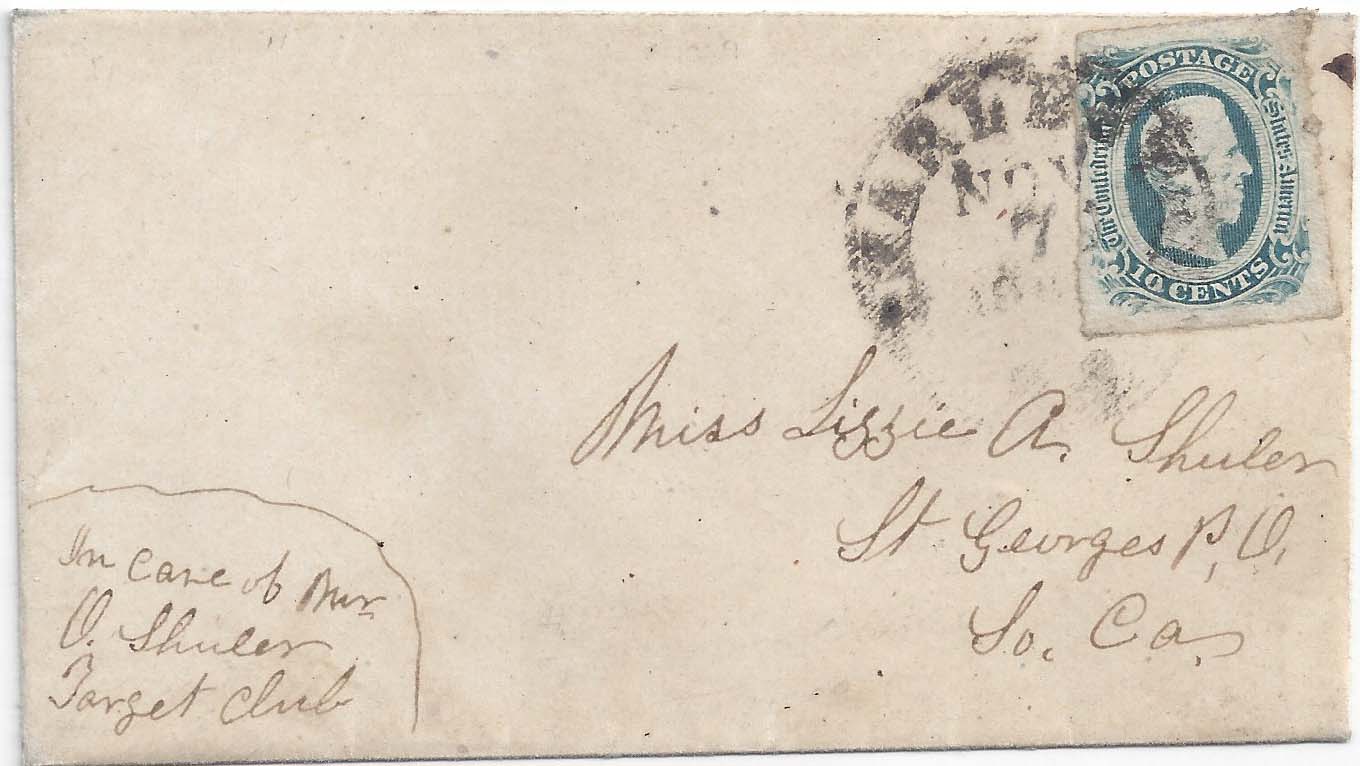 POSTAGE
The Confederate
States America
10 CENTS
NOV
7
Miss Lizzie A. Shuler
St Georges P, O,
So, Ca,
In care of Mr
O. Shuler
Target Club